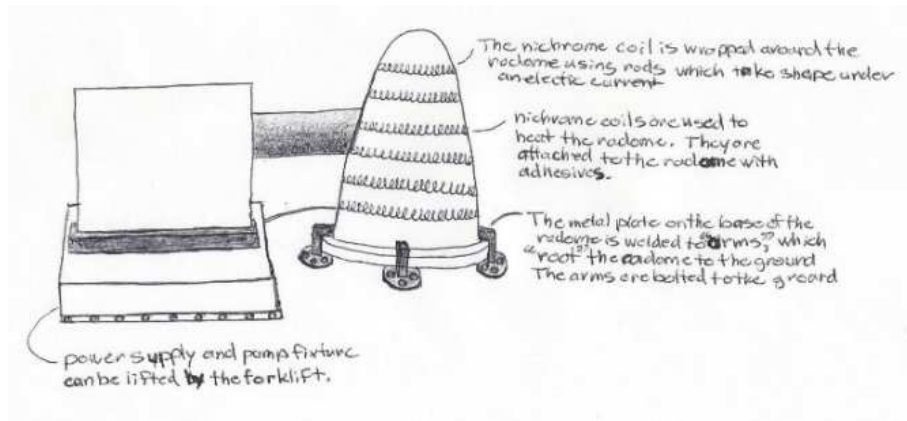 The nichrome coil is wrapped around the
radome using rods which take shape under
an electic current
nichrome coils are used to
heat the radome. They are
attached to the radome with
adhesives.
The metal plate on the base of the
radome is welded to "arms," which
"root" the radome to the ground
The arms are bolted to the groard
power supply and pump fixture
can be lifted by the forklift.